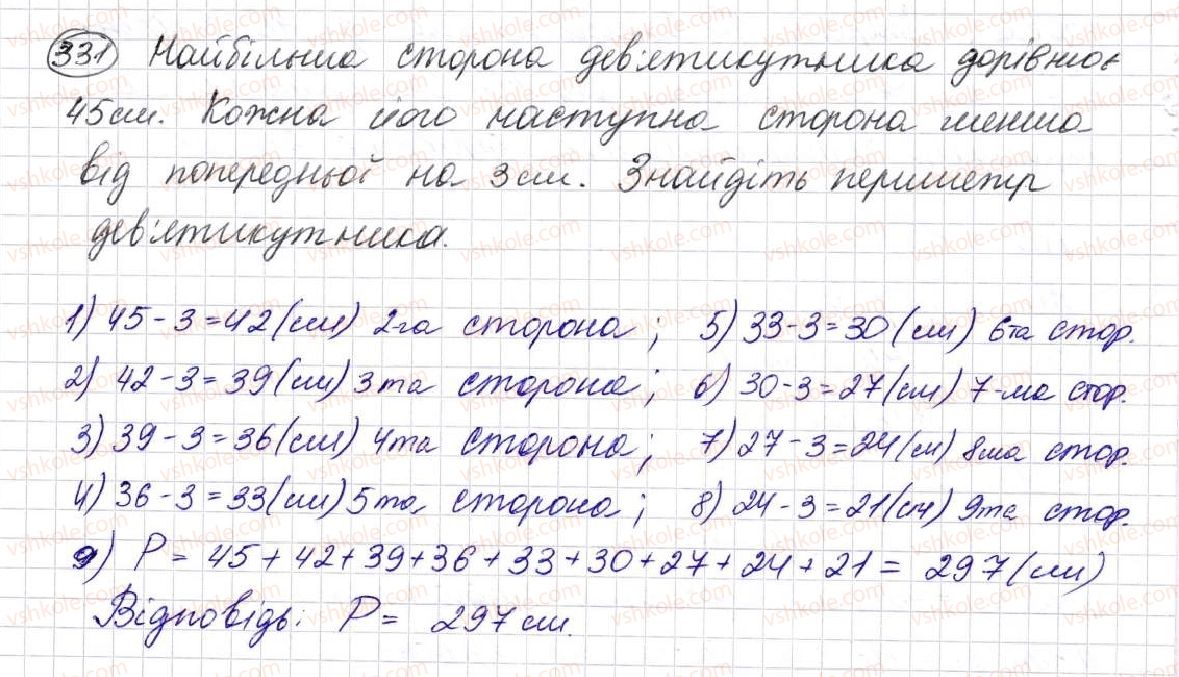 331 Найбільша сторона дев'ятикутника дорівнює
45 см. Кожна його наступна сторона менша
від попередньої на 3 см. Знайдіть периметр
дев'ятикутника.
1) 45 - 3 = 42 (см) 2-га сторона ; 5) 33 - 3 = 30 (см) 6та стор.
2) 42 - 3 = 39 (см) 3 та сторона ; 6) 30 - 3 = 27 (см) 7-ма стор.
3) 39 - 3 = 36 (см) 4та сторона ; 7) 27 - 3 = 24 (см) 8ма стор.
4) 36 - 3 = 33 (см) 5 та сторона ; 8) 24 - 3 = 21 (см) 9та стор.
9) P = 45 + 42 + 39 + 36 + 33 + 30 + 27 + 24 + 21 = 297 (см)
Відповідь: P = 297 см.
vshkole.com